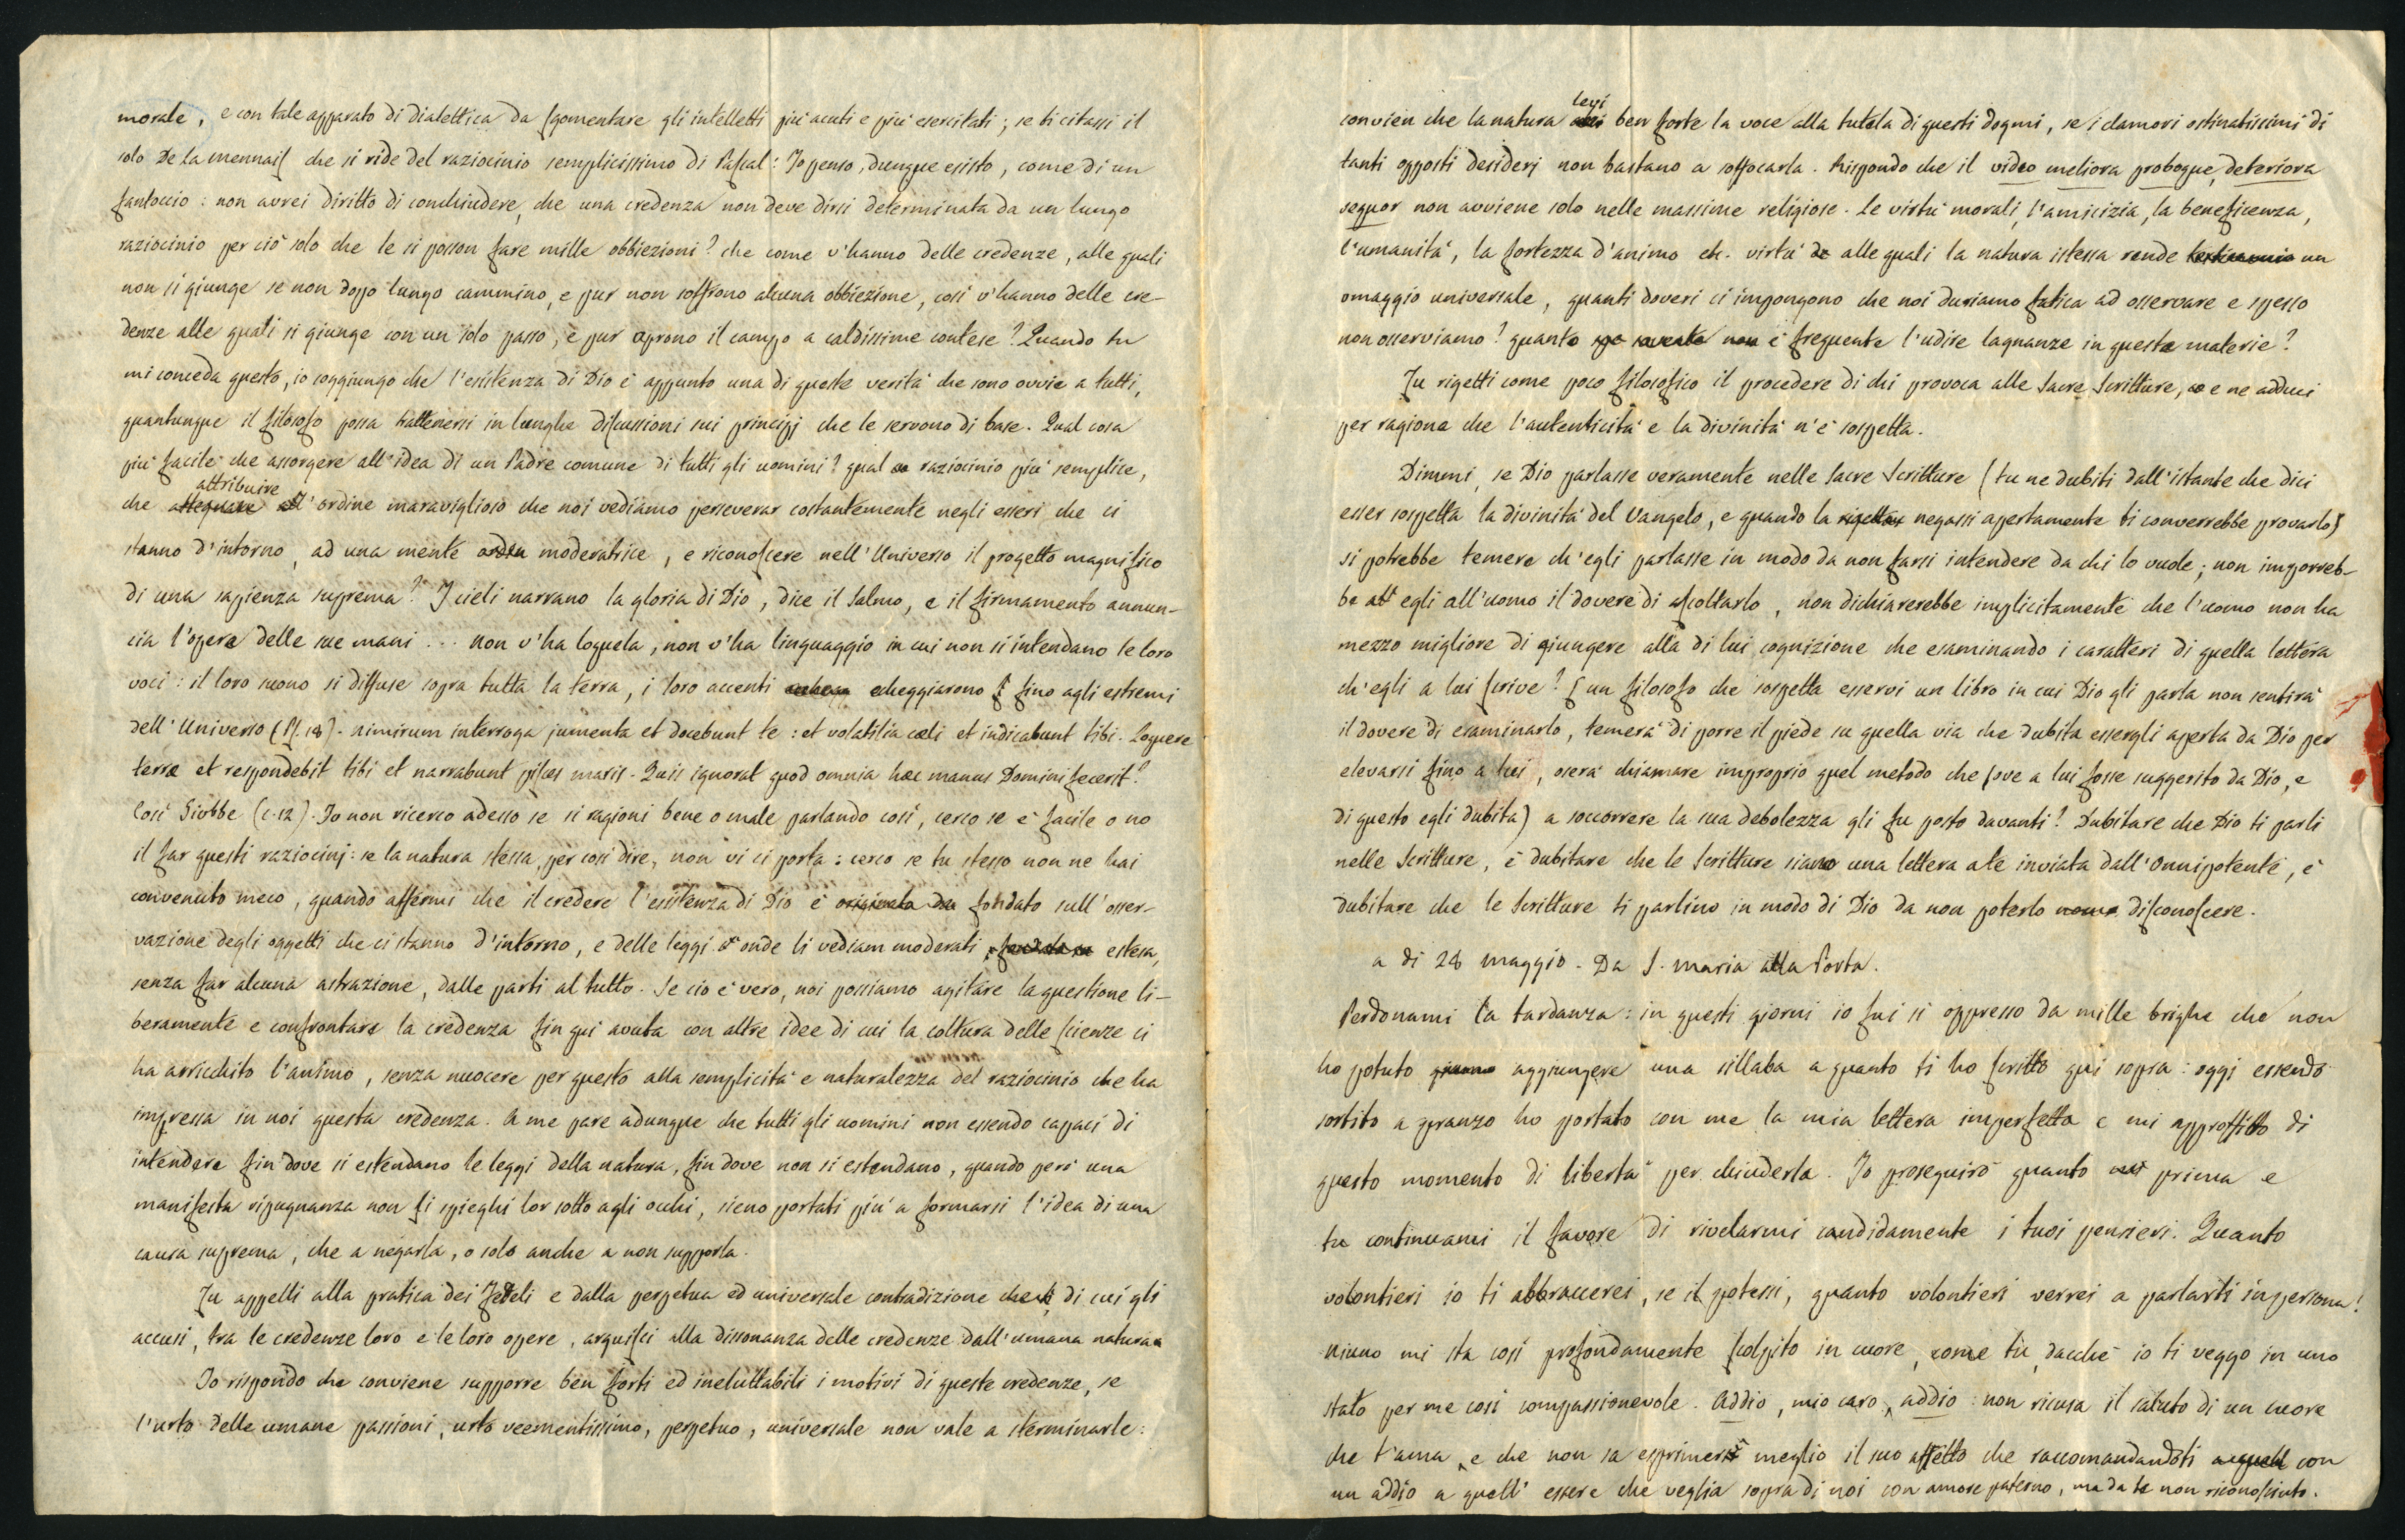 morale, e con tale apparato di dialettica da sgomentare gli intelletti più acuti e più esercitati; se ti citassi il
solo De la mennais che si ride del raziocinio semplicissimo di Pascal: Io penso, dunque esisto, come di un
fantoccio: non avrei diritto di conchiudere, che una credenza non deve dirsi determinata da un lungo
raziocinio per ciò solo che le si posson fare mille obbiezioni? che come v'hanno delle credenze, alle quali
non si giunge se non dopo lungo cammino, e pur non soffrono alcuna obbiezione, così v'hanno delle cre-
denze alle quali si giunge con un solo passo, e pur aprono il campo a caldissime contese? Quando tu
mi conceda questo, io soggiungo che l'esistenza di Dio è appunto una di queste verità che sono ovvie a tutti,
quantunque il filosofo possa trattenersi in lunghe discussioni sui principj che le servono di base. Qual cosa
più facile che assorgere all'idea di un Padre comune di tutti gli uomini? qual raziocinio più semplice,
che attribuire l'ordine maraviglioso che noi vediamo perseverar costantemente negli esseri che ci
stanno d'intorno, ad una mente moderatrice, e riconoscere nell'Universo il progetto magnifico
di una sapienza suprema? I cieli narrano la gloria di Dio, dice il Salmo, e il firmamento annun-
cia l'opera delle sue mani ... non v'ha loquela, non v'ha linguaggio in cui non si intendano le loro
voci: il loro suono si diffuse sopra tutta la terra, i loro accenti echeggiarono fino agli estremi
dell'Universo (Ps. 18). nimirum interroga jumenta et docebunt te: et volatilia cœli et indicabunt tibi. Loquere
terræ et respondebit tibi et narrabunt pisces maris. Quis ignorat quod omnia hæc manus Domini fecerit?
Così Giobbe (c. 12). Io non ricerco adesso se si ragioni bene o male parlando così, cerco se è facile o no
il far questi raziocinj: se la natura stessa, per così dire, non vi ci porta: cerco se tu stesso non ne hai
convenuto meco, quando affermi che il credere l'esistenza di Dio è originato da fondato sull'osser-
vazione degli oggetti che ci stanno d'intorno, e delle leggi onde li vediam moderati, estesa,
senza far alcuna astrazione, dalle parti al tutto. Se ciò è vero, noi possiamo agitare la questione li-
beramente e confrontare la credenza fin qui avuta con altre idee di cui la coltura delle scienze ci
ha arricchito l'animo, senza nuocere per questo alla semplicità e naturalezza del raziocinio che ha
impressa in noi questa credenza. A me pare adunque che tutti gli uomini non essendo capaci di
intendere fin dove si estendano le leggi della natura, fin dove non si estendano, quando però una
manifesta ripugnanza non si spieghi lor sotto agli occhi, sieno portati più a formarsi l'idea di una
causa suprema, che a negarla, o solo anche a non supporla.
Tu appelli alla pratica dei Fedeli e dalla perpetua ed universale contradizione di cui gli
accusi, tra le credenze loro e le loro opere, arguisci alla dissonanza delle credenze dall'umana natura.
Io rispondo che conviene supporre ben forti ed ineluttabili i motivi di queste credenze, se
l'urto delle umane passioni, urto veementissimo, perpetuo, universale non vale a sterminarle:
convien che la natura levi ben forte la voce alla tutela di questi dogmi, se i clamori ostinatissimi di
tanti opposti desiderj non bastano a soffocarla. Rispondo che il video meliora proboque, deteriora
sequor non avviene solo nelle massime religiose. Le virtù morali, l'amicizia, la beneficenza,
l'umanità, la fortezza d'animo etc. virtù alle quali la natura istessa rende testimonio un
omaggio universale, quanti doveri ci impongono che noi duriamo fatica ad osservare e spesso
non osserviamo? quanto è frequente l'udire lagnanze in queste materie?
Tu rigetti come poco filosofico il procedere di chi provoca alle Sacre Scritture, e ne adduci
per ragione che l'autenticità e la divinità n'è sospetta.
Dimmi, se Dio parlasse veramente nelle Sacre Scritture (tu ne dubiti dall'istante che dici
esser sospetta la divinità del Vangelo, e quando la negassi apertamente ti converrebbe provarlo)
si potrebbe temere ch'egli parlasse in modo da non farsi intendere da chi lo vuole; non imporreb-
be egli all'uomo il dovere di ascoltarlo, non dichiarerebbe implicitamente che l'uomo non ha
mezzo migliore di giungere alla di lui cognizione che esaminando i caratteri di quella lettera
ch'egli a lui scrive? (un filosofo che sospetta esservi un libro in cui Dio gli parla non sentirà
il dovere di esaminarlo, temerà di porre il piede su quella via che dubita essergli aperta da Dio per
elevarsi fino a lui, oserà chiamare improprio quel metodo che forse a lui fosse suggerito da Dio, e
di questo egli dubita) a soccorrere la sua debolezza gli fu posto davanti? Dubitare che Dio ti parli
nelle Scritture, è dubitare che le Scritture siano una lettera a te inviata dall'Onnipotente, è
dubitare che le Scritture ti parlino in modo di Dio da non poterlo disconoscere.
a dì 28 maggio. Da S. Maria alla Porta.
Perdonami la tardanza: in questi giorni io fui sì oppresso da mille brighe che non
ho potuto aggiungere una sillaba a quanto ti ho scritto qui sopra: oggi essendo
sortito a pranzo ho portato con me la mia lettera imperfetta e mi approffitto di
questo momento di libertà per chiuderla. Io proseguirò quanto prima e
tu continuami il favore di rivelarmi candidamente i tuoi pensieri. Quanto
volontieri io ti abbraccerei, se il potessi, quanto volontieri verrei a parlarti in persona!
Niuno mi sta così profondamente scolpito in cuore, come tu, dacchè io ti veggo in uno
stato per me così compassionevole. Addio, mio caro, addio: non ricusa il saluto di un cuore
che t'ama, e che non sa esprimere meglio il suo affetto che raccomandandoti con
un addio a quell'essere che veglia sopra di noi con amore paterno, ma da te non riconosciuto.